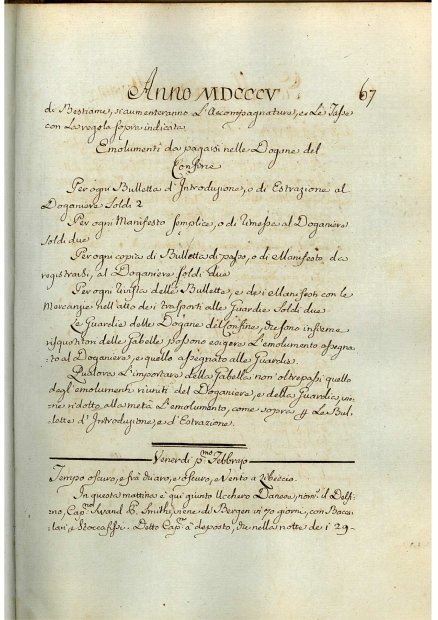 Anno MDCCCV
67
di Bestiame, si aumenteranno L'Accompagnatura, e Le Tasse
con La regola sopra indicata.
Emolumenti da pagarsi nelle Dogane del
Confine
Per ogni Bulletta d'Introduzione, o di Estrazione al
Doganiere Soldi 2
Per ogni Manifesto semplice, o di rimessa al Doganiere
Soldi due
Per ogni copia di Bulletta di passo, o di Manifesto da
registrarsi, al Doganiere Soldi due
Per ogni visita delle Bullette, e dei Manifesti con le
Mercanzie nell'atto dei trasporti alle Guardie Soldi due
Le Guardie delle Dogane di Confine, che sono insieme
risquotitori delle Gabelle possono esigere L'emolumento assegna-
to al Doganiere, e quello assegnato alle Guardie.
Qualora L'importare della Gabella non oltrepassi quello
degl'emolumenti riuniti del Doganiere, e della Guardia,
ridotto alla metà L'emolumento, come sopra Le Bul-
lette d'Introduzione, e d'Estrazione.
Venerdì pmo Febbrajo
Tempo oscuro, e fra chiaro, e oscuro, e Vento a Libeccio.
In questa mattina è qui giunto Danese, nom. il Delfi-
no, Capno Smith, viene di Bergen in 70 giorni, con Bacca-
lari, e Stoccafissi. Detto Capn à deposto, che nella notte de i 29-